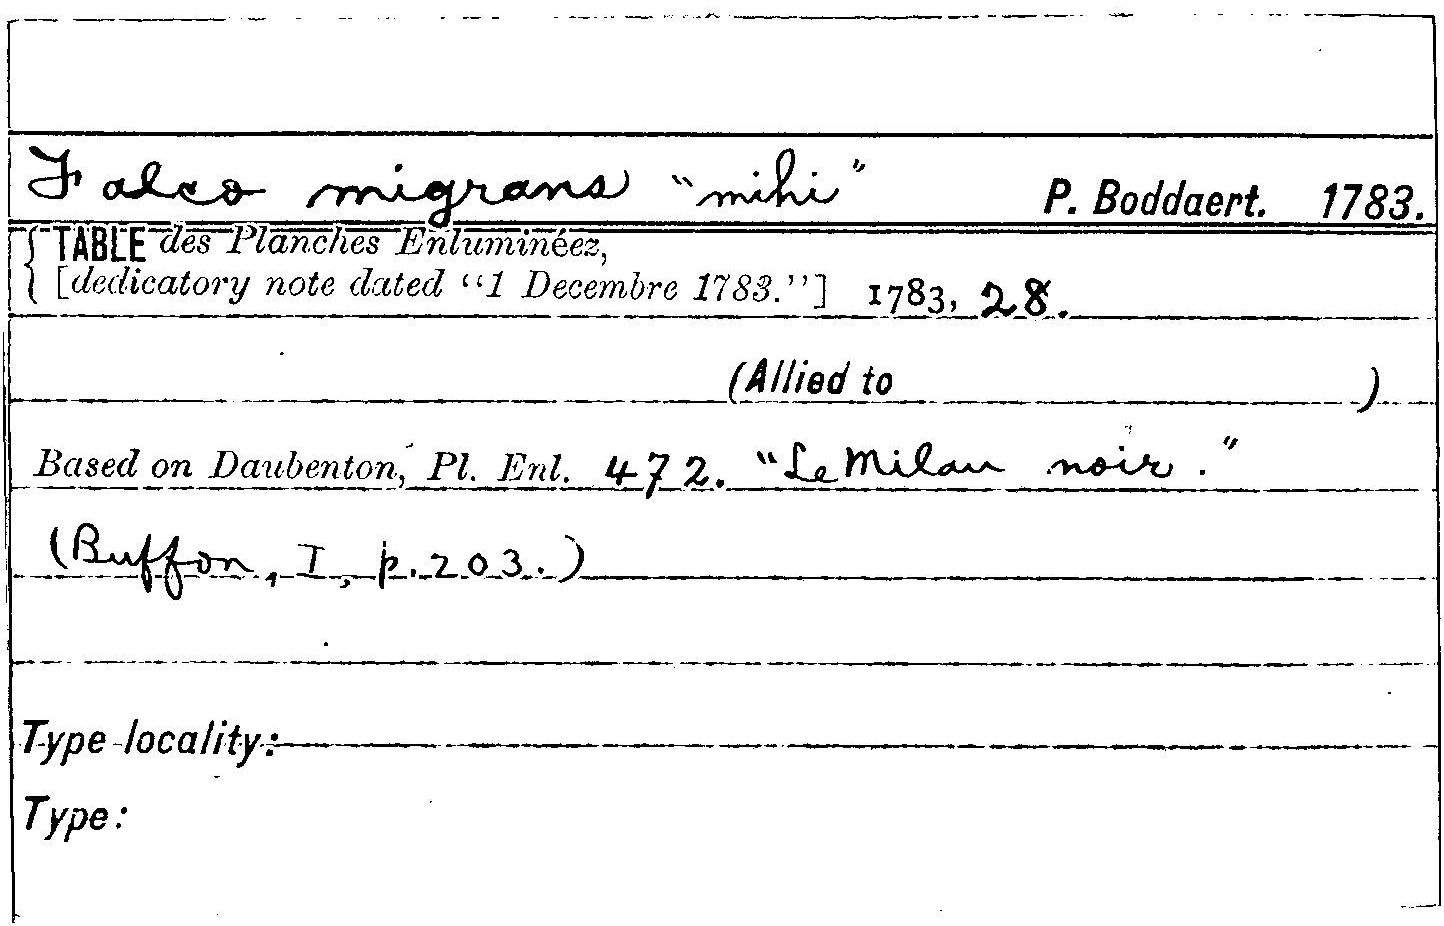 Falco migrans "mihi" P. Boddaert. 1783.
TABLE des Planches Enluminéez,
[dedicatory note dated "1 Decembre 1783."] 1783, 28.
(Allied to )
Based on Daubenton, Pl. Enl. 472. "Le Milan noir."
(Buffon, I, p. 203.)
Type locality:
Type: